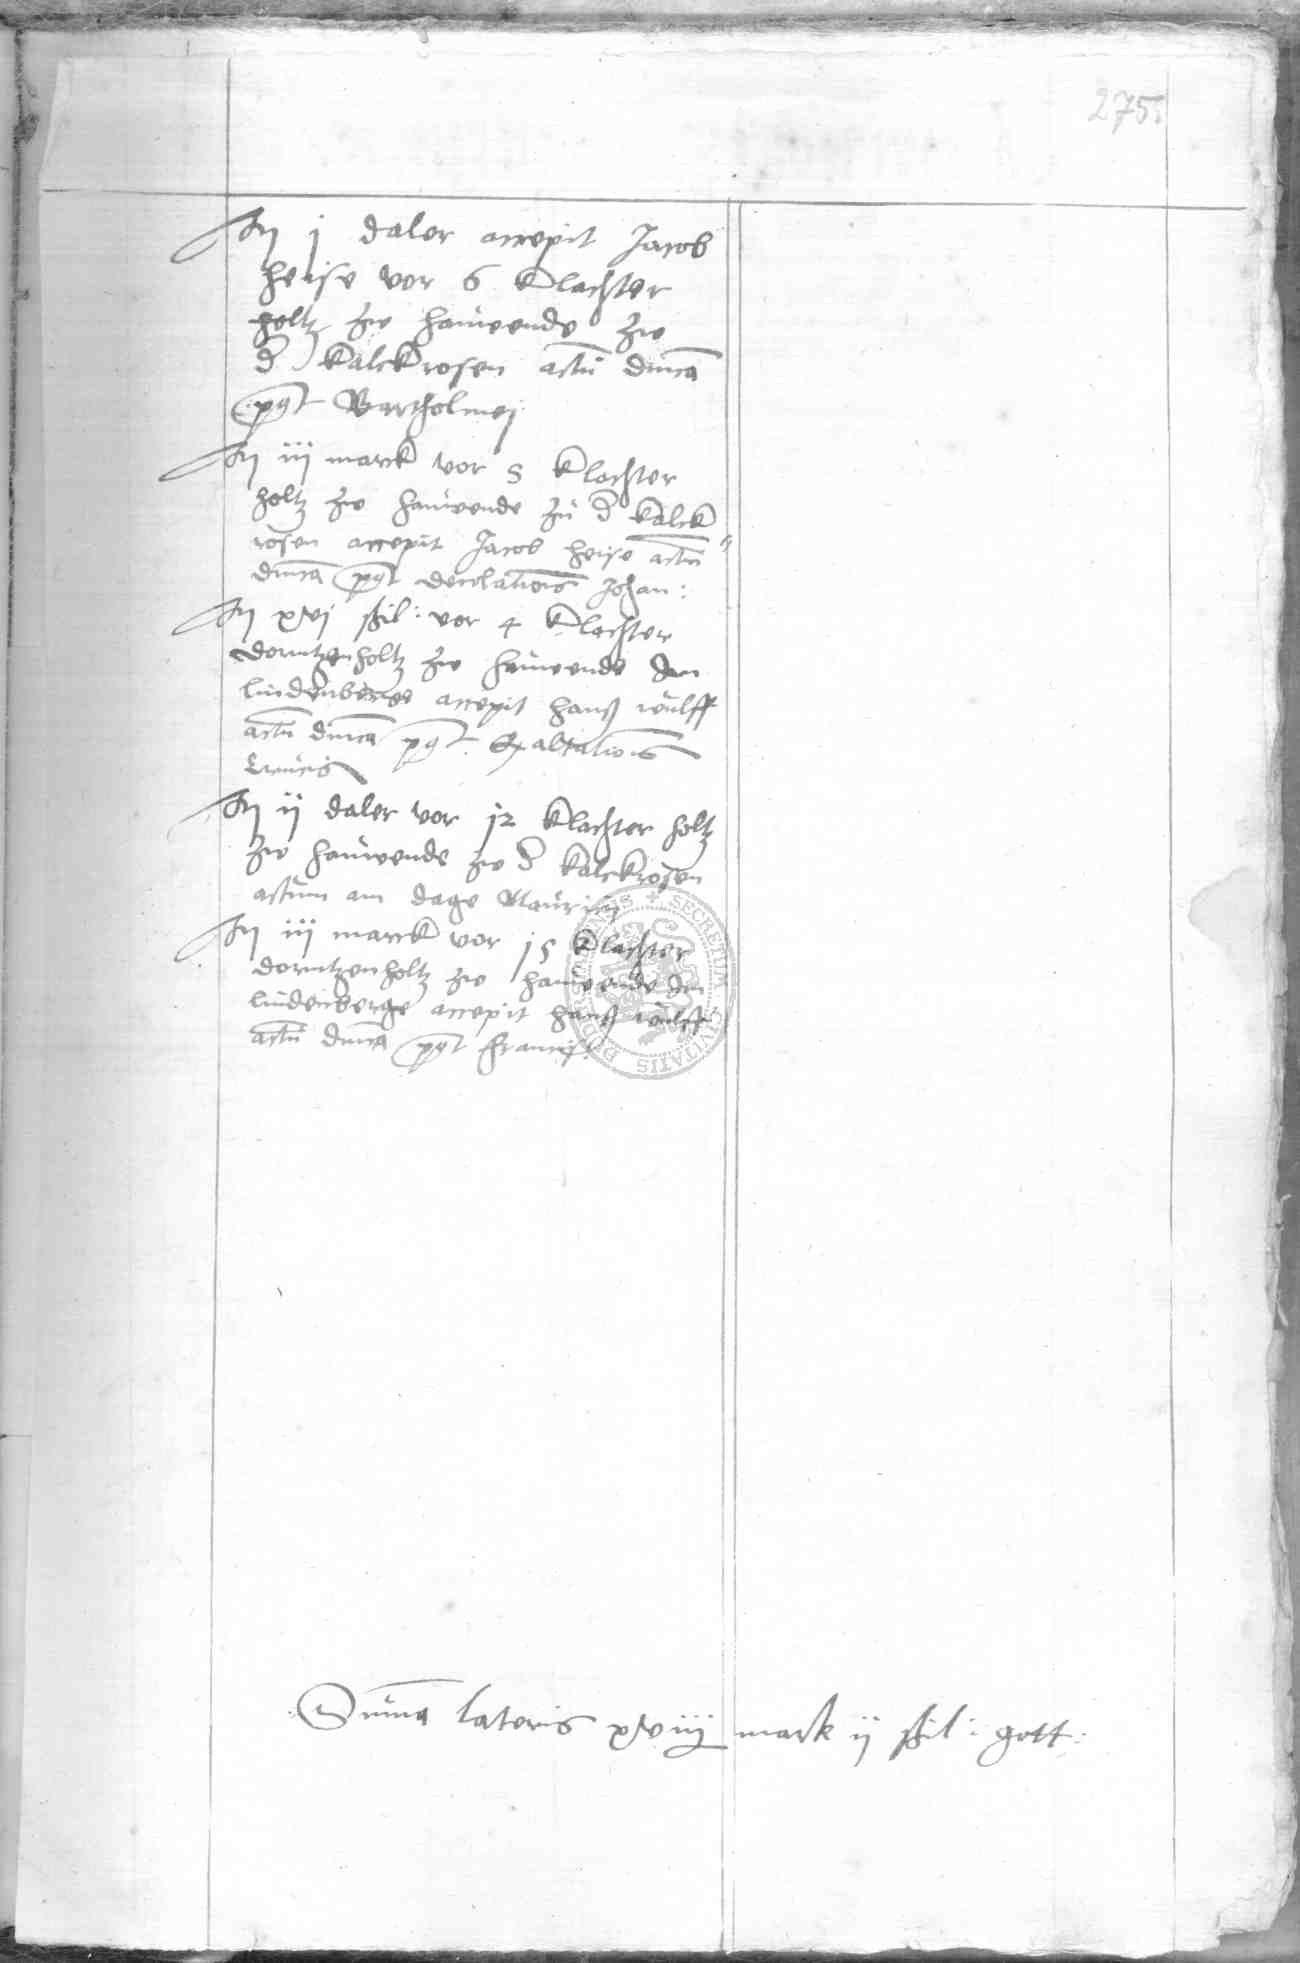 275
Itm j daler accepit Jacob
heise vor 6 klachter
holtz zw hauwende zw
d kalckrosen actu dmica
pqt Bartholmej
Itm iij marck vor 5 klachter
holtz zw hauwende zu d kalck
rosen accepit Jacob heise actu
dmica pqt decolationis Johan:
Itm xvj schil: vor 4 klachter
dorntzenholtz zw hauwende den
lindenberge accepit hanß wulff
actu dmica pqt Exaltationis
Crucis
Itm ij daler vor 12 klachter holtz
zw hauwende zw d kalckrosen
actum am dage Mauricij
Itm iij marck vor 15 klachter
dorntzenholtz zw hauwende den
lindenberge accepit hanß wulff
actu dmica pqt francisj
SECRETUM CIVITATIS
Suma lateris xviij mark ij schil: gott: